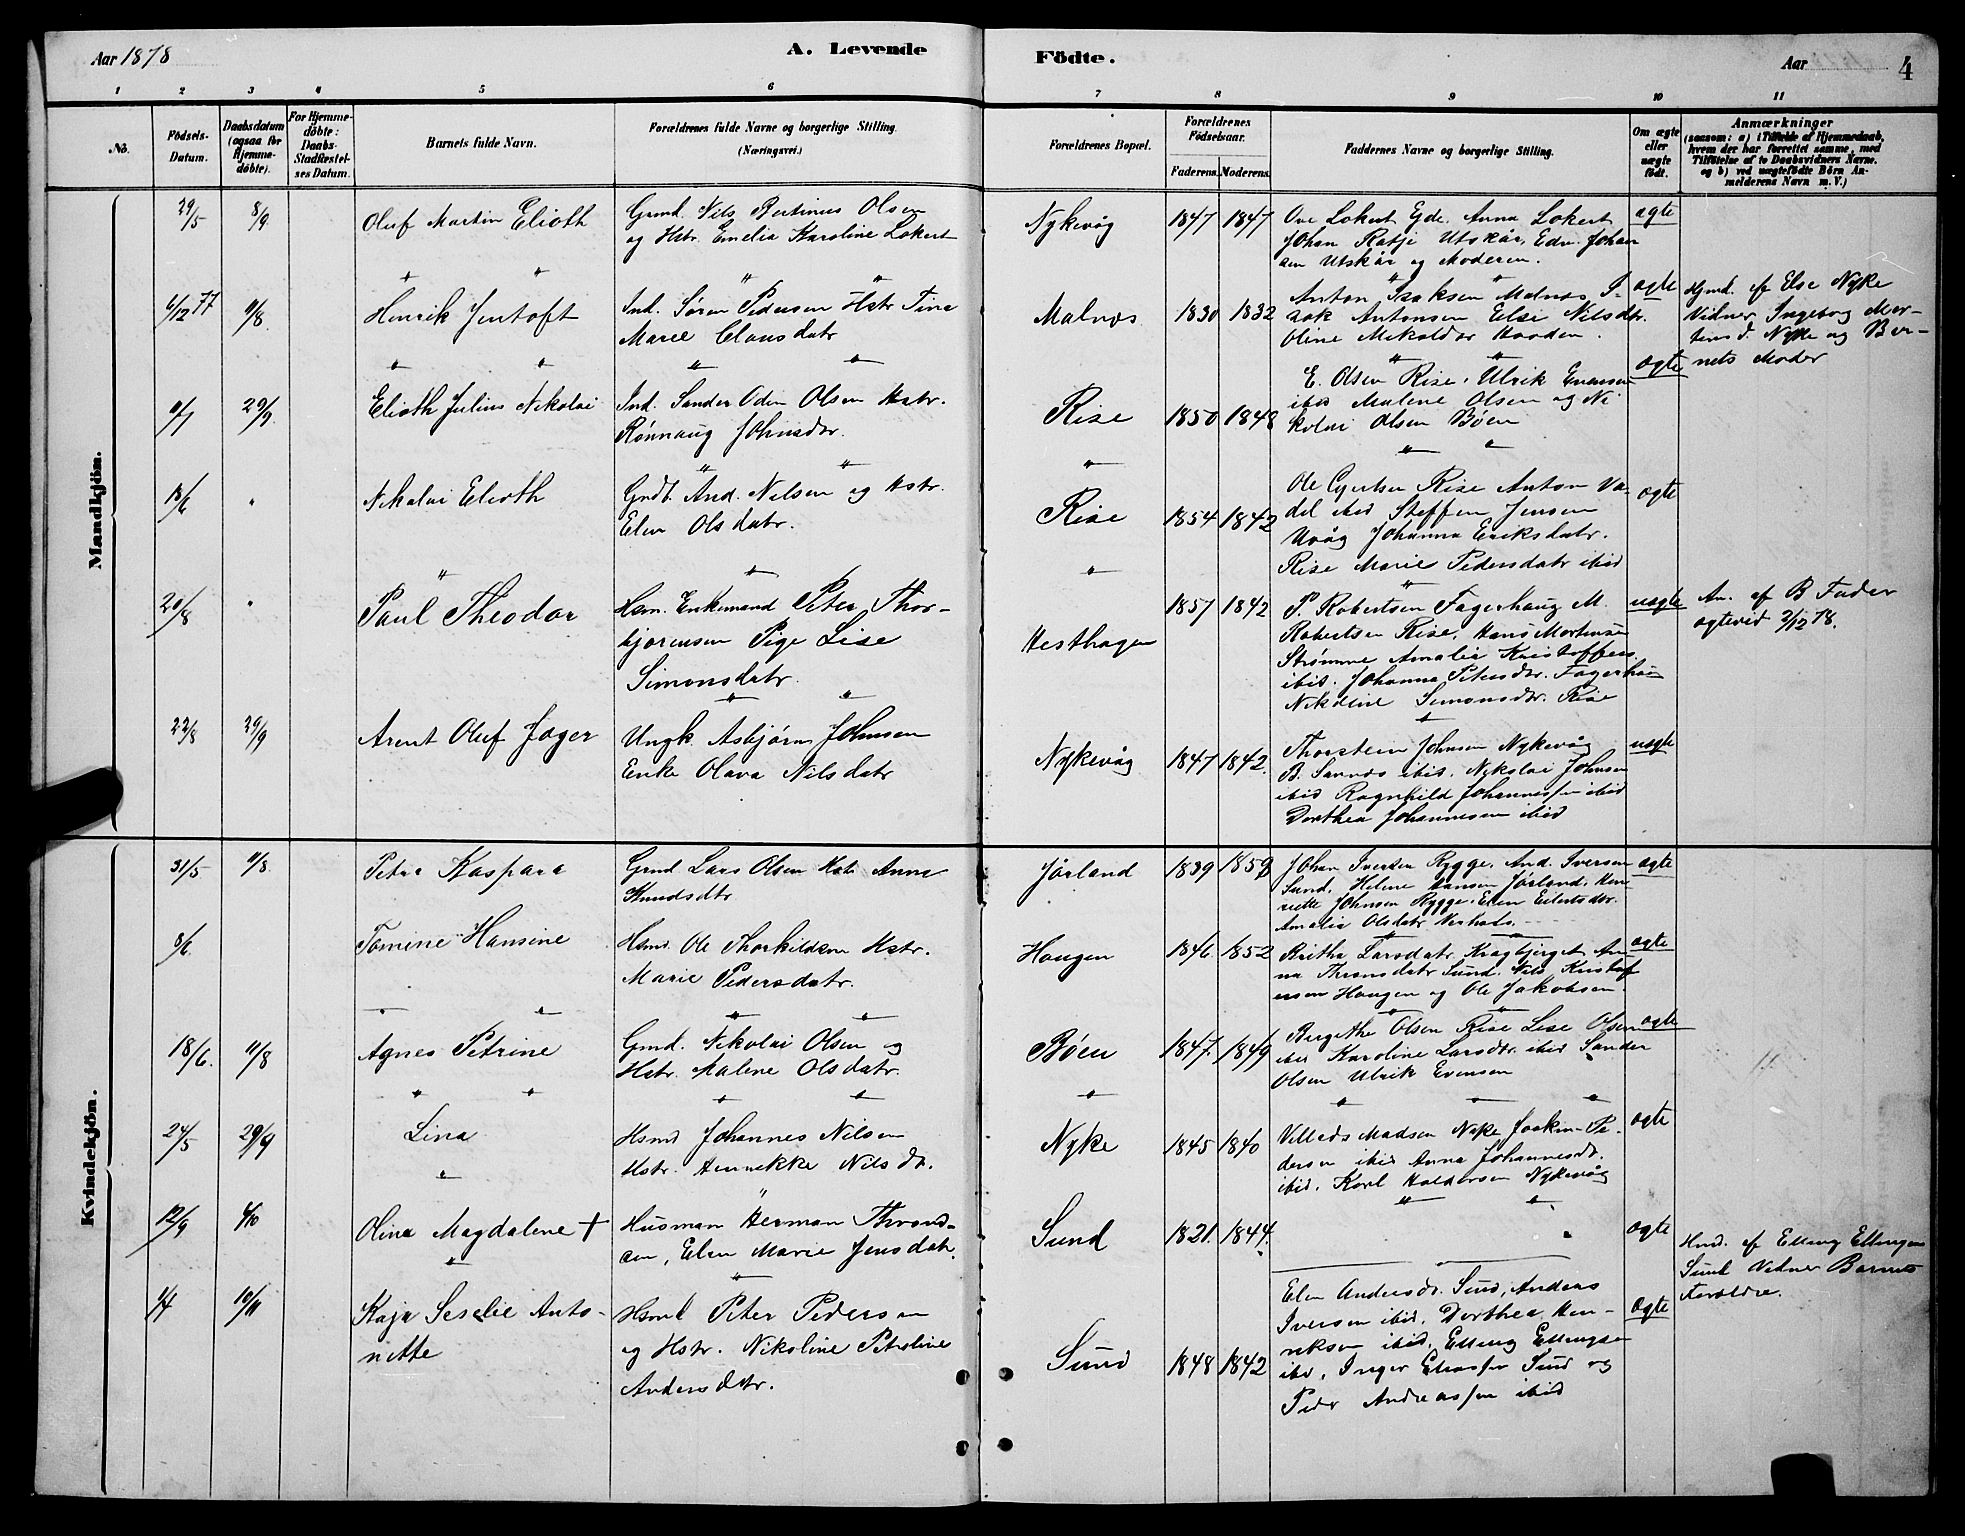 Aar 1878
A. Levende
Födte.
Aar
4
1 2 3 4 5 6 7 8 9 10 11
No.
Födsels-
Datum.
Daabsdatum
(ogsaa for
Hjemme-
döbte).
For Hjemme-
döbte:
Daabs-
Stadfæstel-
ses Datum.
Barnets fulde Navn.
Forældrenes fulde Navne og borgerlige Stilling.
(Næringsvei.)
Forældrenes Bopæl.
Forældrenes
Födselsaar.
Faderens. Moderens.
Faddernes Navne og borgerlige Stilling.
Om ægte
eller
uægte
födt.
Anmærkninger
(saasom: a) i Tilfælde af Hjemmedaab,
hvem der har forrettet samme, med
Tilföielse af to Daabsvidners Navne.
og b) ved uægtefödte Börn An-
melderens Navn m. V.)
Mandkjön.
29/5 8/9
Oluf Martin Elioth
Grmd. Nils Bertinus Olsen
og Hstr. Emelia Karoline Lokert
Nykevåg
1847 1847
Ove Lokert Ejde. Anna Lokert
Johan Ratje Utskår, Edv. Johan
sen Utskår og Moderen.
ægte
6/12 77 11/8
Henrik Jentoft
Ind. Søren Pedersen Hstr Tina
Marie Clausdatr
Malnæs
1830 1832
Anton Isaksen Malnæs I-
sak Antonsen Else Nilsdtr.
Oline Mikaldtr
ægte
Hjmd. af Else Nyke
Vidner Ingeborg Mor-
tensd. Nyke og Bar-
nets Moder
11/7 29/9
Elioth Julius Nikolai
Ind. Sander Odin Olsen Hstr.
Rønnaug Johnsdtr.
Rise
1850 1848
E. Olsen Rise, Ulrik Evensen
ibid Malene Olsen og Ni-
kolai Olsen Bøen
ægte
18/6 "
Nikolai Elioth
And. Nilsen og Hstr.
Elen Olsdatr.
Rise
1854 1842
Ole Gjertsen Rise Anton Va-
del ibid Steffen Jensen
Uvåg Johanna Eriksdatr.
Rise Marie Pedersdatr ibid
ægte
20/8 "
Paul Theodor
Hsm. Enkemand Peter Thor-
bjørensen Pige Lise
Simonsdatr.
Hesthagen
1857 1842
P. Robertsen Fagerhaug M.
Robertsen Rise, Hans Mortensen
Strømme Amalia Kristoffers.
ibid. Johanna Petersdtr. Fagerhau
Nikoline Simonsdtr. Rise
uægte
An. af B Fader
ægtevid 2/12 78.
22/8 29/9
Arent Oluf Jager
Ungk. Asbjørn Johnsen
Enke Olava Nilsdatr
Nykevåg
1847 1842.
Thorstein Johnsen Nykevåg
B. Sannæs ibid. Nykolai Johnsen
ibid Ragnhild Johannessen ibid
Dorthea Johannesen ibid
uægte
Kvindekjön.
31/5 11/8
Petra Kaspara
Grmd Lars Olsen Hstr Anne
Knudsdtr
Jørland
1839 1859
Johan Iversen Rygge. And. Iversen
Sund. Helene Hansen Jørland. Hen-
riette Johnsen Rygge. Elen Eilertsdtr.
Amalia Olsdatr
ægte
8/6.
Tomine Hansine
Hsmd. Ole Thorkildsen Hstr.
Marie Pedersdatr.
Haugen
1846 1852
Birithe Larsdatr. Kragbjerget An-
na Thronsdatr Sund. Nils Kristof
ersen Haugen og Ole Jakobsen
ægte
18/6. 11/8
Agnes Petrine
Grmd. Nikolai Olsen og
Hstr. Malene Olsdatr.
Bøen
1847. 1849
Bergithe Olsen Rise Lise Olsen
ibid Karoline Larsdtr. ibid Sander
Olsen Ulrik Evensen
ægte
24/5 29/9
Lina
Hsmd Johannes Nilsen
Hstr. Annikke Nilsdr.
Nyke
1845 1840
Villads Madsen Nyke Joakim Pe-
dersen ibid Anna Johannesdr.
ibid. Karl Haldorsen Nykevåg
ægte
12/9 6/10
Olina Magdalene +
Husman Herman Thrond-
sen, Elen Marie Jensdatr.
Sund
1821. 1844.
ægte
Hmd. af Elling Ellingsen
Sund Vidner Barnets
Forældre.
1/4 10/11
Kaja Seselie Anto-
nette
Hsmd Peter Pedersen
og Hstr. Nikoline Petroline
Andersdtr.
Sund
1848 1842
Elen Andersdr. Sund, Anders
Iversen ibid, Dorthea Hen-
riksen ibid, Elling Ellingse
ibid, Inger Eliassen Sund og
Peder Andreassen ibid
ægte